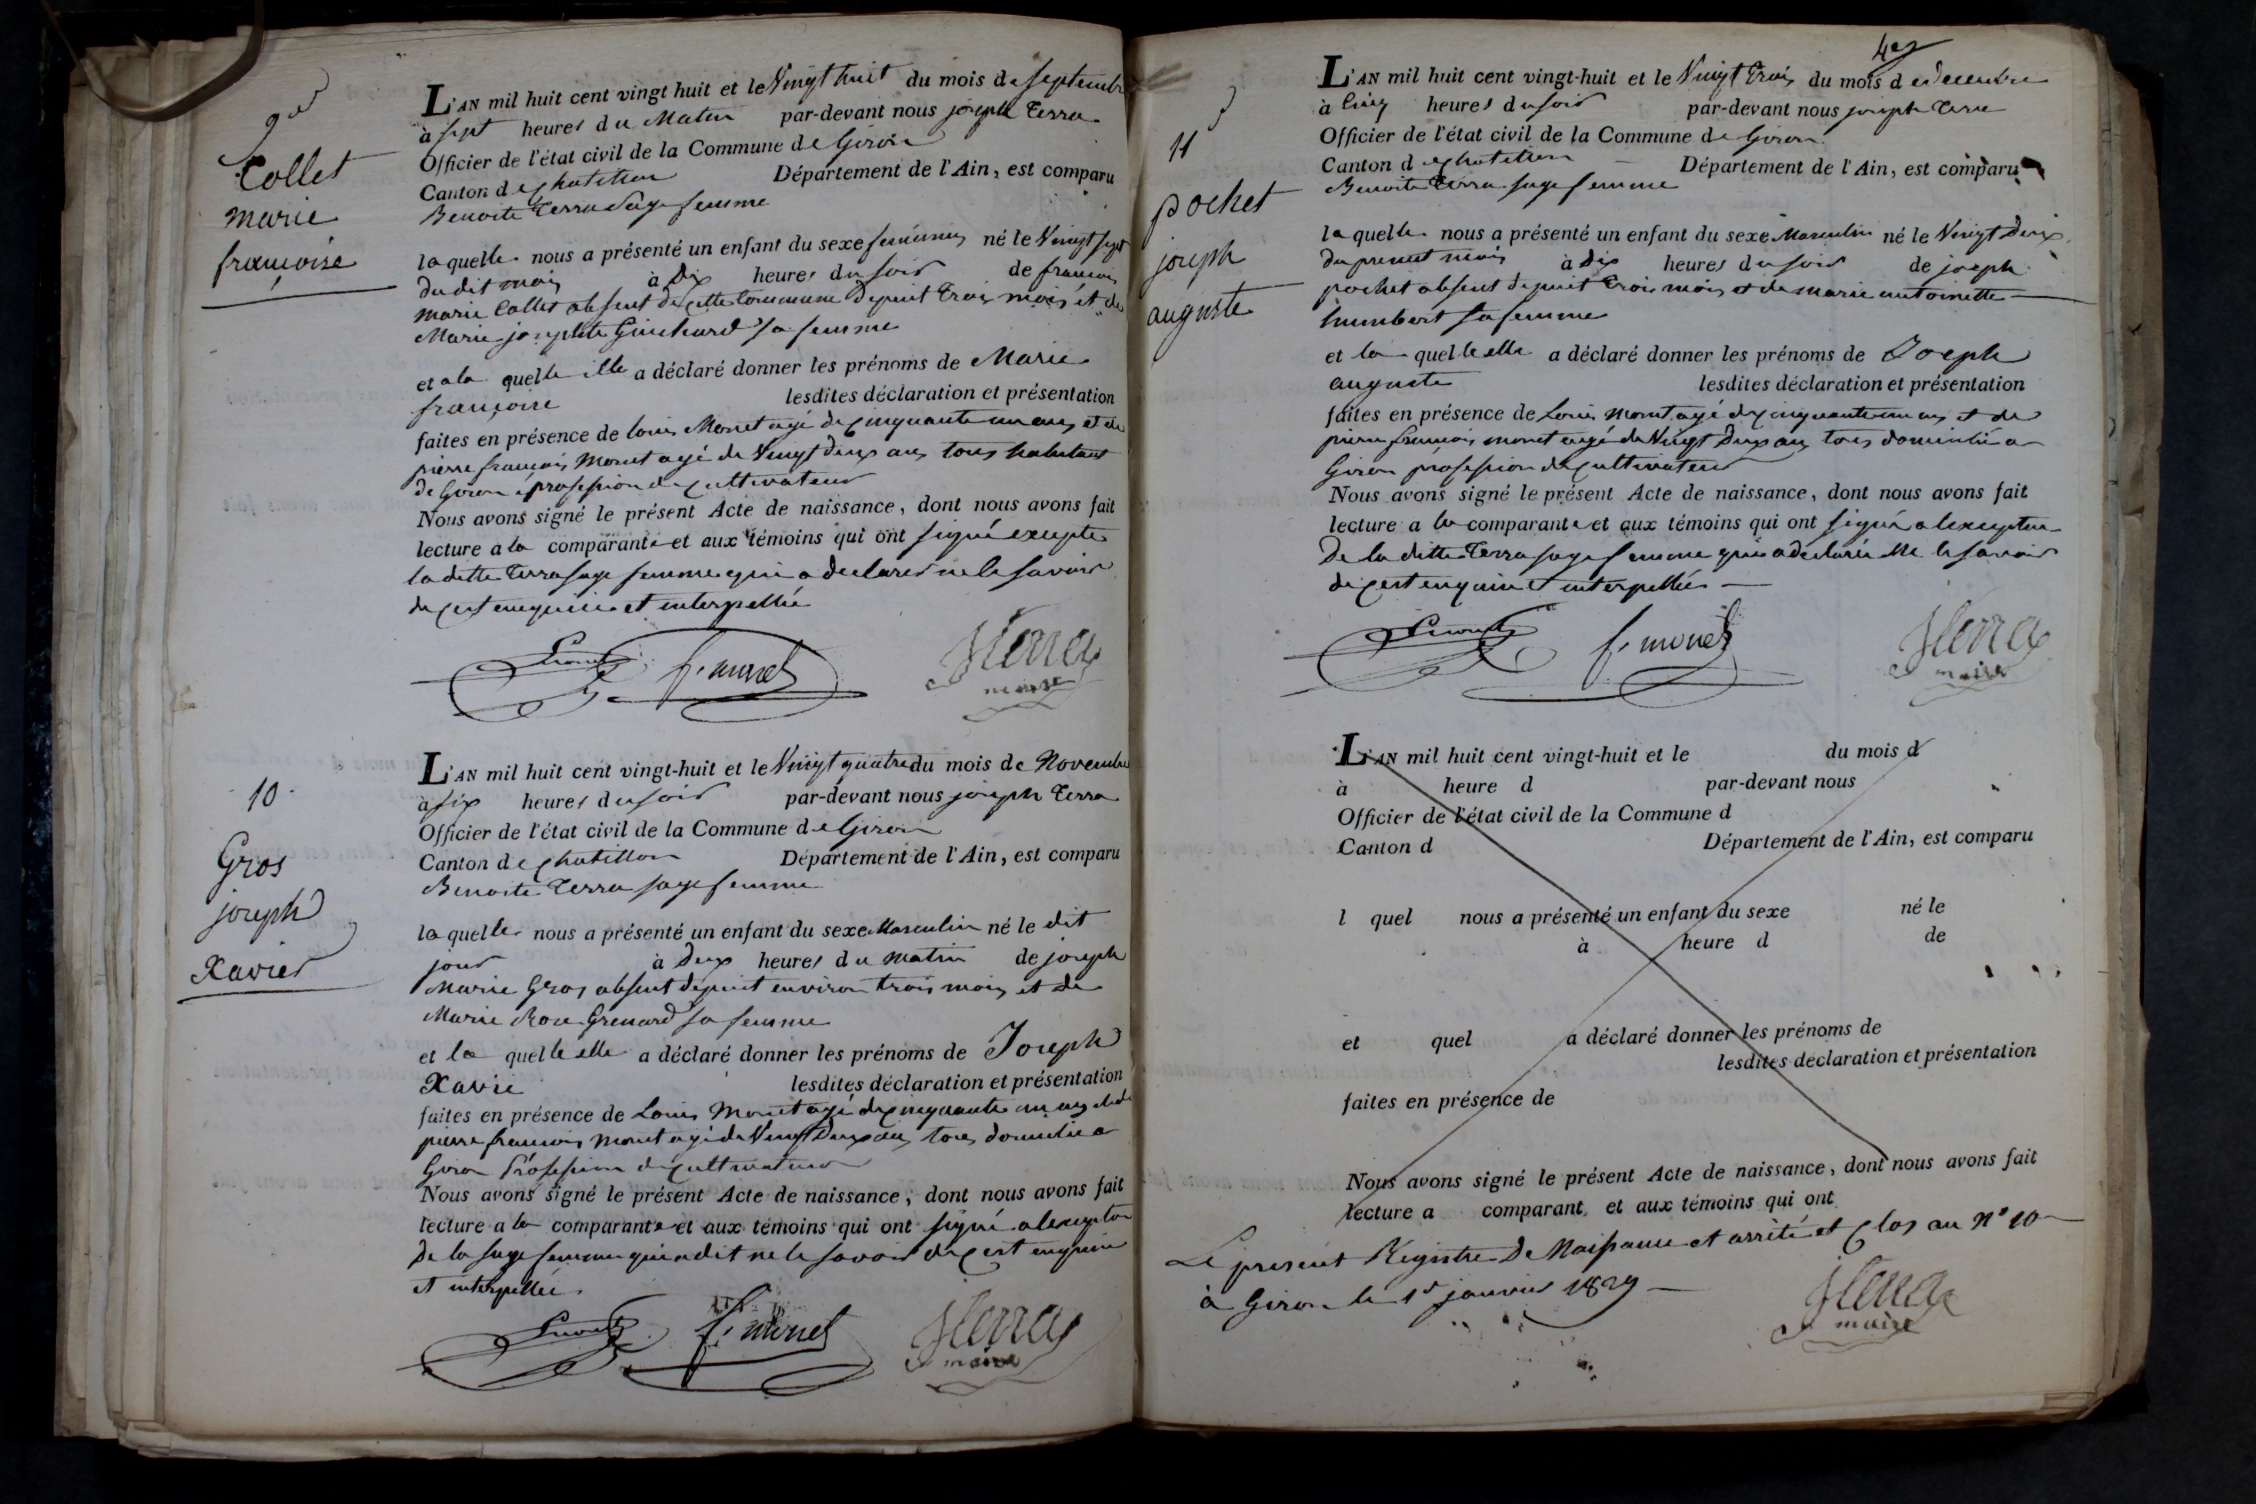 9e
Collet
marie
françoise
L'AN mil huit cent vingt huit et le Vingt huit du mois de septembre
à sept heures du Matin par-devant nous joseph Terra
Officier de l'état civil de la Commune de Giron
Canton de chatillon Département de l'Ain, est comparu
Benoite Terra sage femme
laquelle nous a présenté un enfant du sexe feminin né le Vingt sept
du dit mois à Dix heures du soir de francois
marie Collet absent de cette Commune depuit trois mois et de
Marie josephte Guichard sa femme
et a la quelle elle a déclaré donner les prénoms de Marie
françoise lesdites déclaration et présentation
faites en présence de louis Monet agé de cinquante un ans et de
pierre françois Monet agé de Vingt deux ans tous habitant
de Giron profession de cultivateur
Nous avons signé le présent Acte de naissance, dont nous avons fait
lecture a la comparante et aux témoins qui ont signé excepte
la ditte Terra sage femme qui a declarer ne le savoir
de cest enquise et interpellée
f. monet
JTerra
maire
10
Gros
joseph
Xavier
L'AN mil huit cent vingt-huit et le Vingt quatre du mois de Novembre
à six heures du soir par-devant nous joseph Terra
Officier de l'état civil de la Commune de Giron
Canton de chatillon Département de l'Ain, est comparu
Benoite Terra sage femme
laquelle nous a présenté un enfant du sexe Masculin né le dit
jour à Deux heures du matin de joseph
Marie Gros absent depuit environ trois mois et de
Marie Rose Grenard sa femme
et la quelle elle a déclaré donner les prénoms de Joseph
Xavie lesdites déclaration et présentation
faites en présence de Louis Monet agé de cinquante un ans et de
pierre francois Monet agé de Vingt Deux ans tous domicilié a
Giron Profession de cultivateur
Nous avons signé le présent Acte de naissance, dont nous avons fait
lecture a la comparante et aux témoins qui ont signé a lexception
De la sage femme qui a dit ne le savoir de cest enquise
et interpellée.
f. monet
JTerra
maire
11
pochet
joseph
auguste
L'AN mil huit cent vingt-huit et le Vingt trois du mois de decembre
à Cinq heures du soir par-devant nous joseph Terra
Officier de l'état civil de la Commune de Giron
Canton de chatillon Département de l'Ain, est comparu
Benoite Terra sage femme
laquelle nous a présenté un enfant du sexe Masculin né le Vingt Deux
du present mois à dix heures du soir de joseph
pochet absent depuit trois mois et de marie antoinette
humbert sa femme
et la quelle elle a déclaré donner les prénoms de Joseph
auguste lesdites déclaration et présentation
faites en présence de Louis Monet agé de cinquante un ans et de
pierre francois monet agé de Vingt Deux ans tous domicilié a
Giron profession de cultivateur
Nous avons signé le présent Acte de naissance, dont nous avons fait
lecture a la comparante et aux témoins qui ont signé a lexception
De la ditte Terra sage femme qui a declarée Ne le savoir
de cest enquise et interpellée
f. monet
JTerra
maire
L'AN mil huit cent vingt-huit et le du mois d
à heure d par-devant nous
Officier de l'état civil de la Commune d
Canton d Département de l'Ain, est comparu
l quel nous a présenté un enfant du sexe né le
à heure d de
et quel a déclaré donner les prénoms de
lesdites déclaration et présentation
faites en présence de
Nous avons signé le présent Acte de naissance, dont nous avons fait
lecture a comparant et aux témoins qui ont
Le present Registre De Naissance et arrêté et Clos au N° 10
à Giron le 1er janvier 1829
JTerra
maire